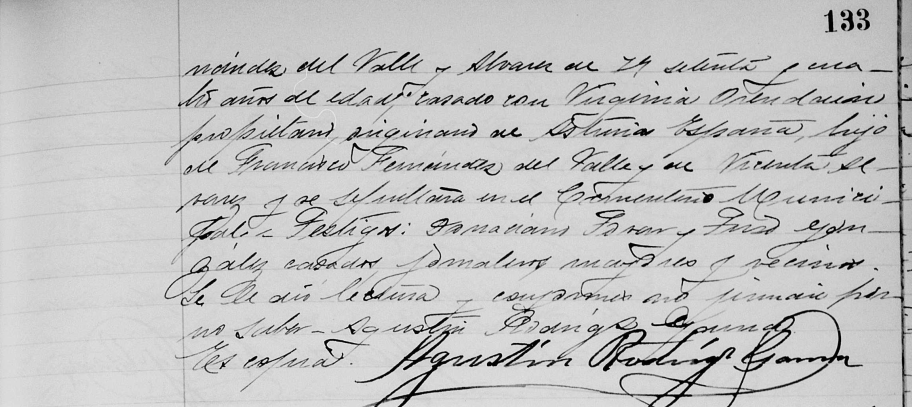 133
nández del Valle y Alvarez de 74 setenta y cua-
tro años de edad, casado con Virginia Orendain
propietario, originario de Asturias España, hijo
de Francisco Fernández del Valle y de Vicenta Al-
varez y se sepultará en el Cementerio Munici-
pal.- Testigos: Tovar y González
casados, jornaleros mayores y vecinos.
Se le dió lectura y conformes no firman por
no saber - Agustín Rodríg Gaona
Es copia. Agustín Rodríg Gaona